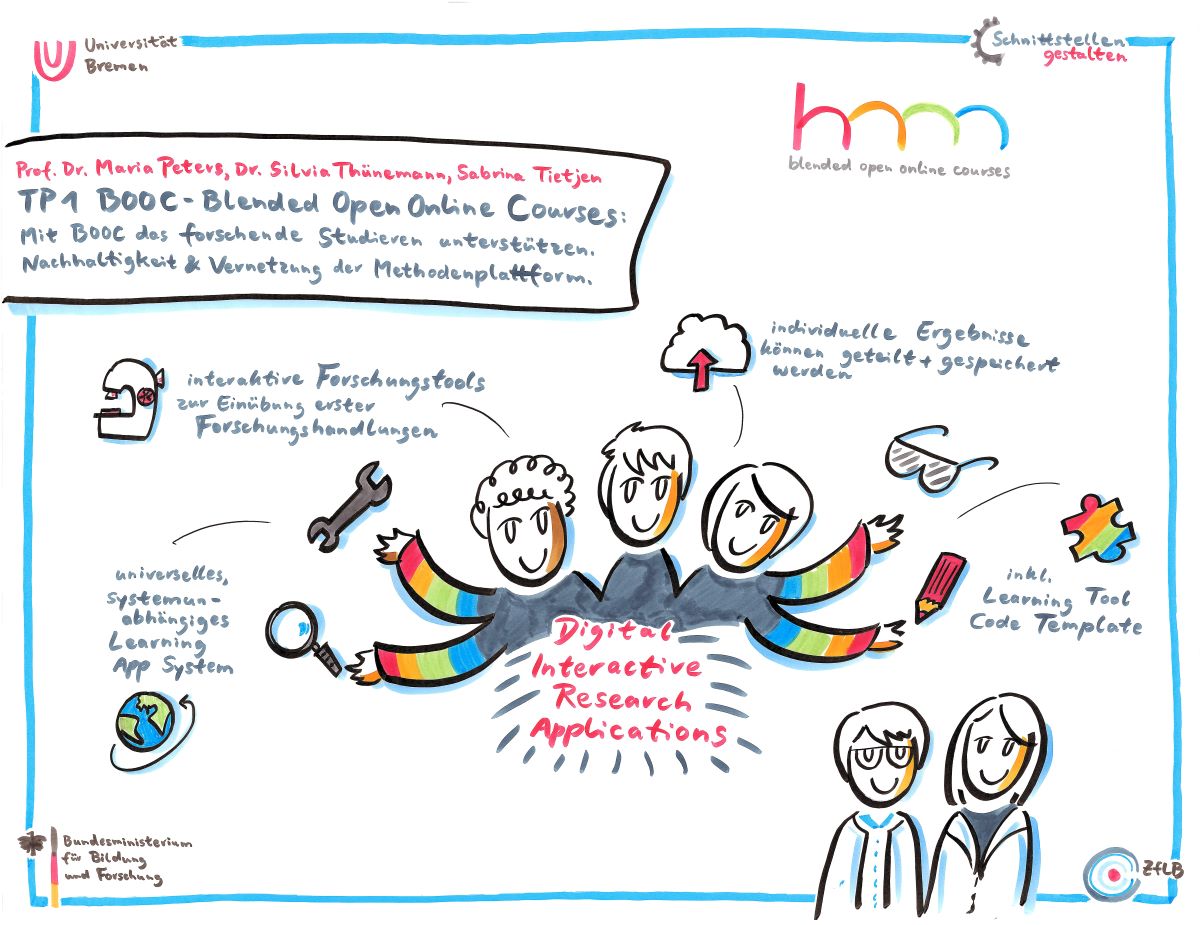 Universität
Bremen
Schnittstellen
gestalten
blended open online courses
Prof. Dr. Maria Peters, Dr. Silvia Thünemann, Sabrina Tietjen
TP1 BOOC - Blended Open Online Courses:
Mit BOOC das forschende Studieren unterstützen.
Nachhaltigkeit & Vernetzung der Methodenplattform.
individuelle Ergebnisse
können geteilt + gespeichert
werden
interaktive Forschungstools
zur Einübung erster
Forschungshandlungen
universelles,
systemun-
abhängiges
Learning
App System
inkl.
Learning Tool
Code Template
Digital
Interactive
Research
Applications
Bundesministerium
für Bildung
und Forschung
ZfLB